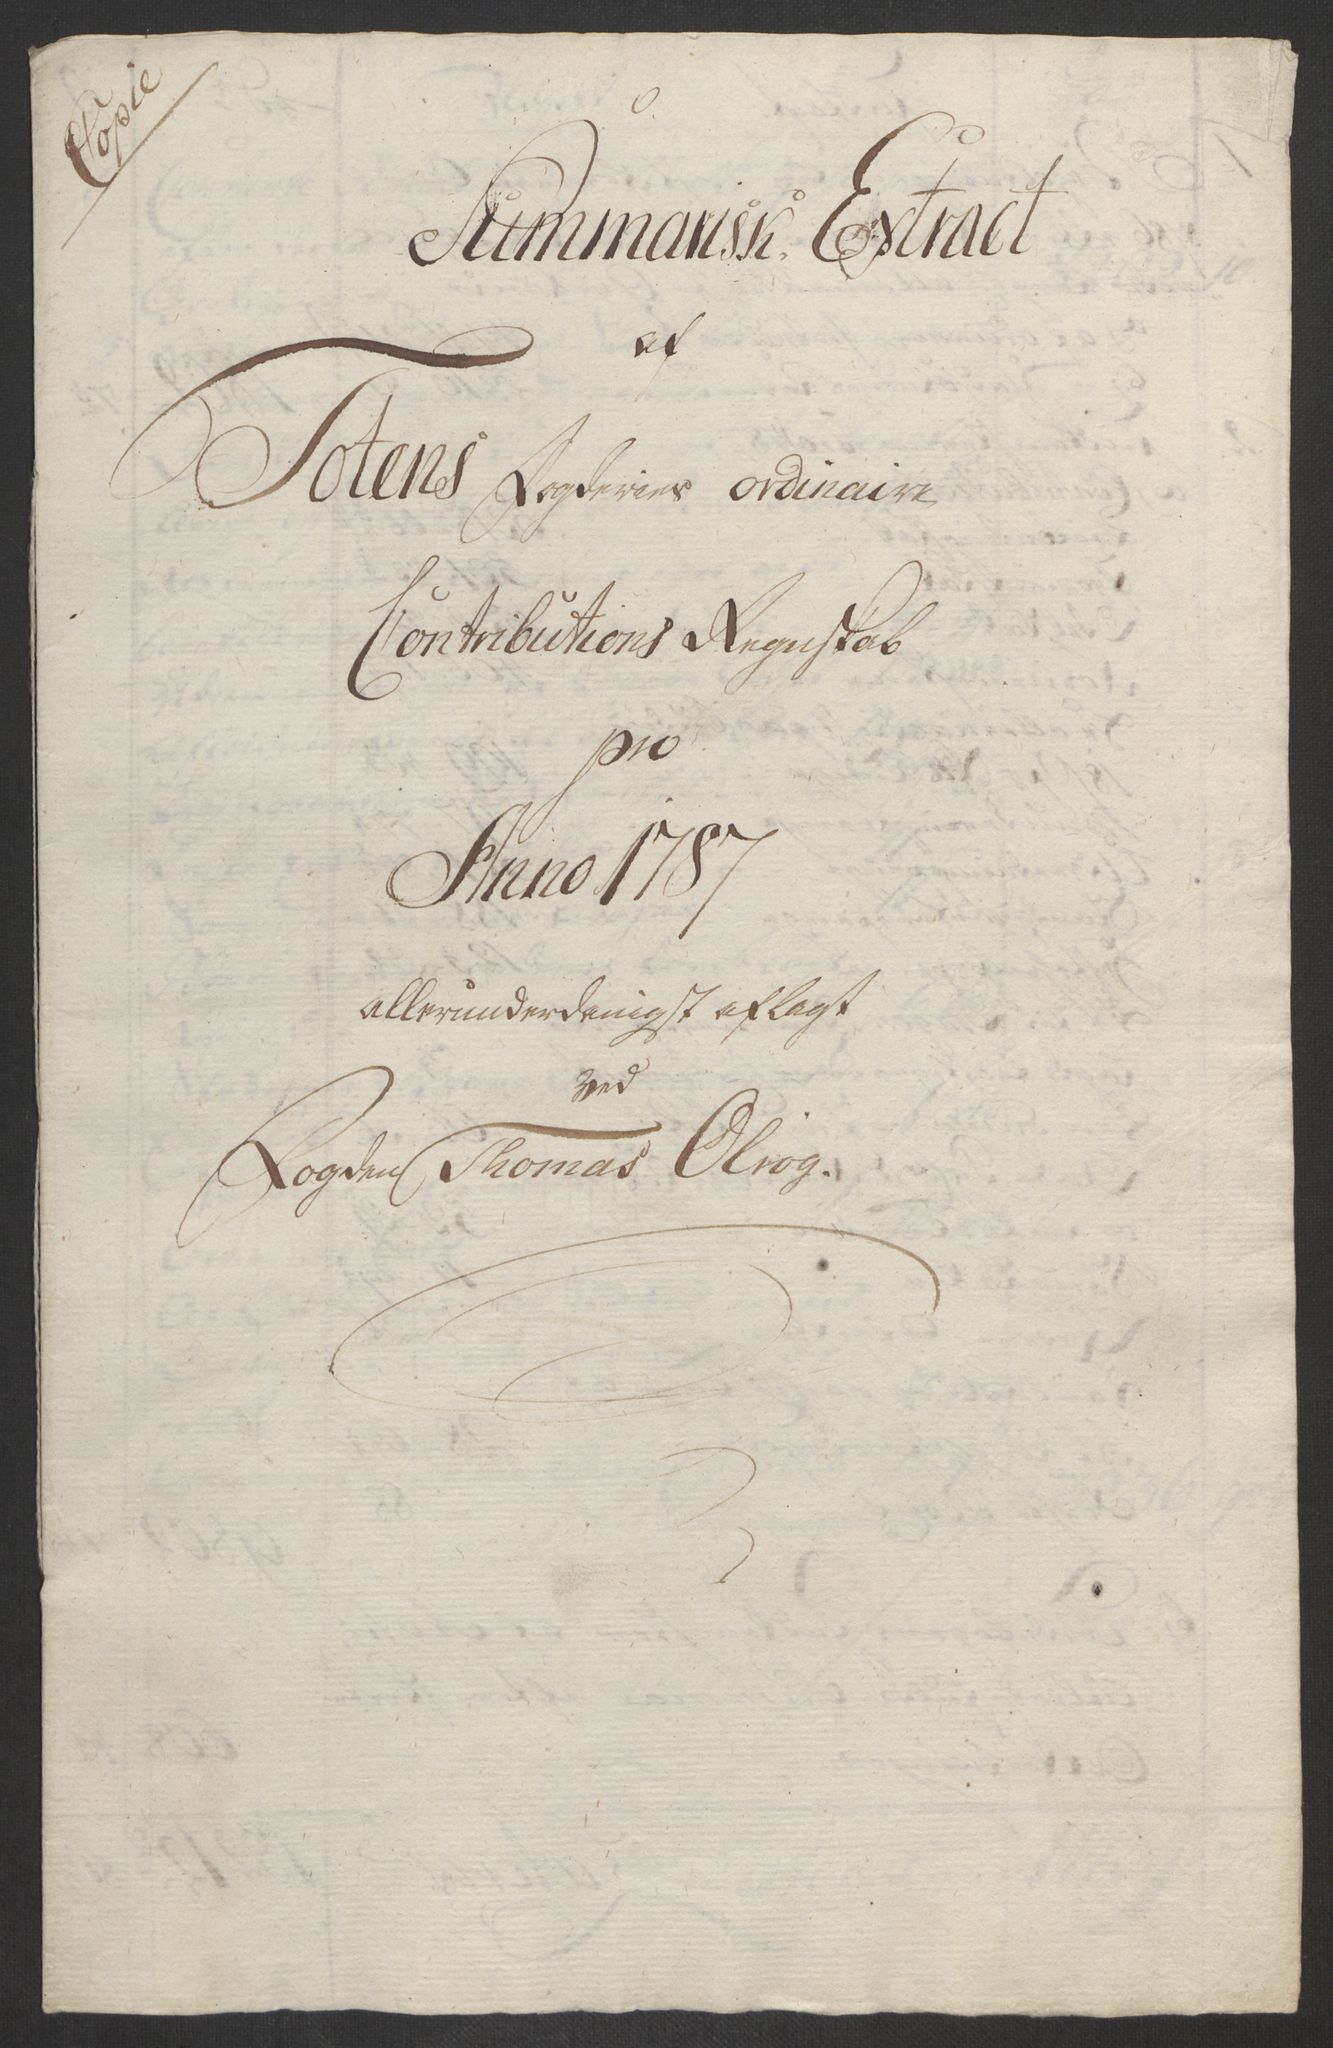 Copie
Summarisk Extract
af
Totens Fogderies ordinaire
Contributions Regnskab
pro
Anno 1787
allerunderdanigst aflagt
ved
Fogden Thomas Olrog.